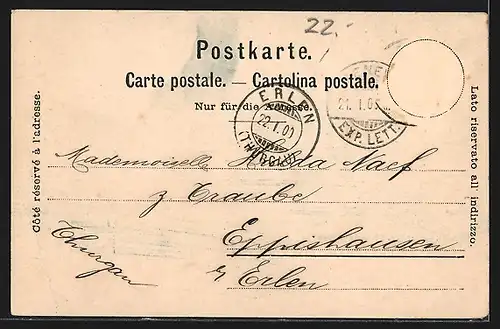 22.-
Postkarte.
Carte postale. — Cartolina postale.
Nur für die Adresse.
Côté réservé à l'adresse.
Lato riservato all' indirizzo.
ERLEN
22.I.01
(THURGAU)
EXP. LETT.
Mademoiselle Naef
z Traube
Eppishausen
Thurgau
Erlen